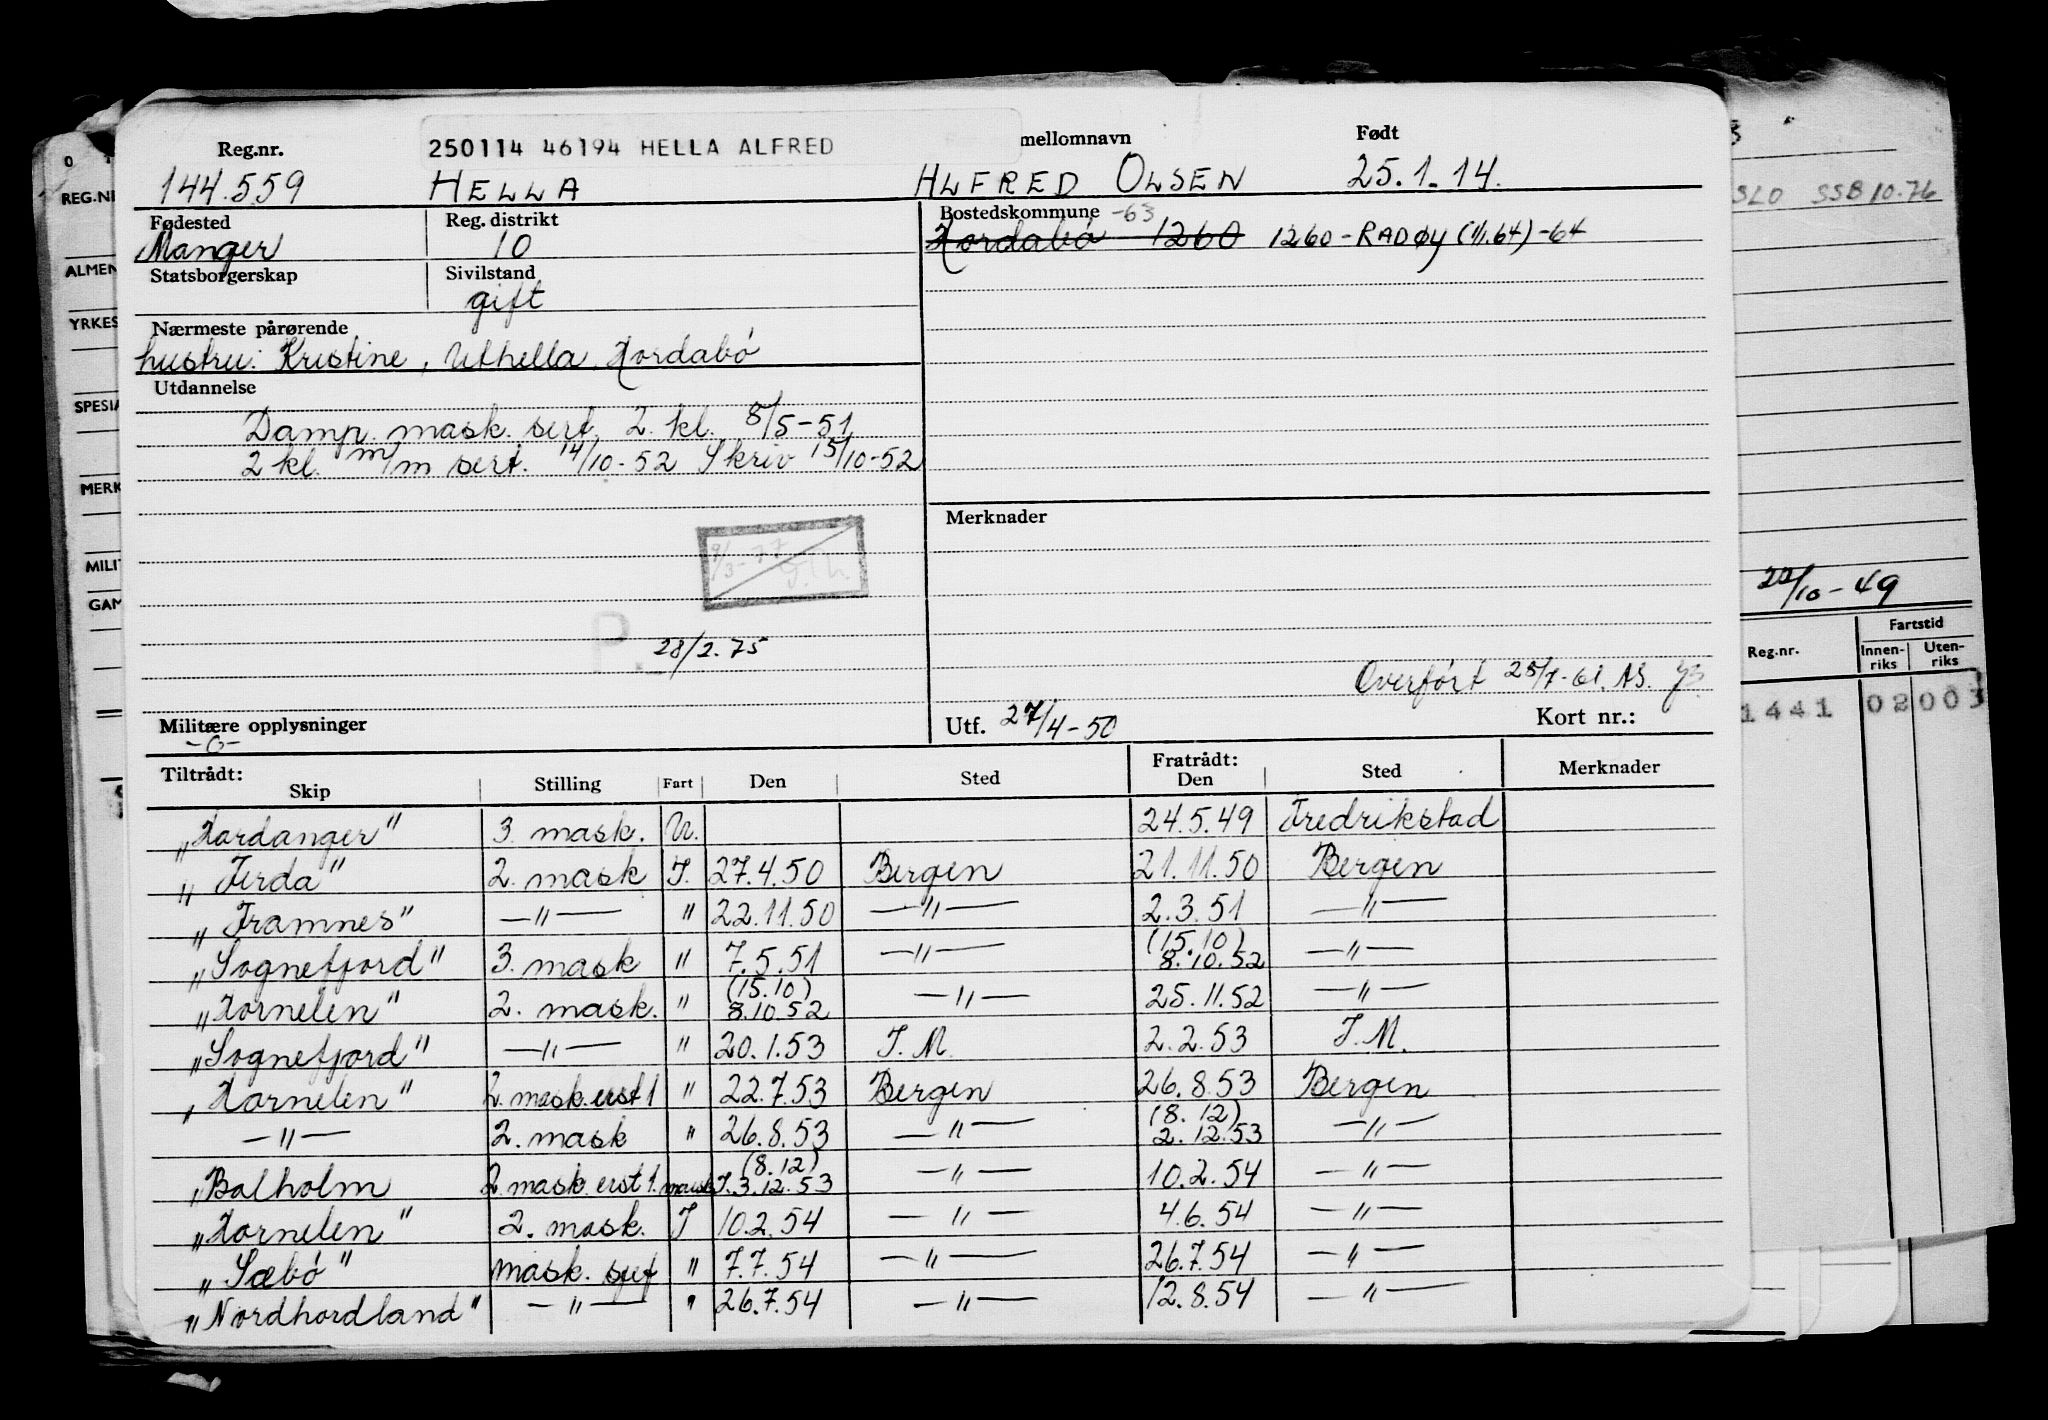 Reg.nr. 250114 46194 HELLA ALFRED mellomnavn Født
144.559 HELLA ALFRED OLSEN 25.1.14.
Fødested Reg. distrikt Bostedskommune -63
Manger 10 Hordabø 1260 1260 - RADØY (1/1.64) -64
Statsborgerskap Sivilstand
gift
Nærmeste pårørende
hustru: Kristine, Uthella, Hordabø
Utdannelse
Damp. mask. sert. 2. kl. 8/5-51
2 kl. m/m sert. 14/10-52 Skriv 15/10-52
Merknader
9/3-77
P. 28/2.75
Overført 25/7-61. AS.
Militære opplysninger Utf. 27/4-50 Kort nr.:
-0-
Tiltrådt: Fratrådt:
Skip Stilling Fart Den Sted Den Sted Merknader
"Hardanger" 3. mask. U. 24.5.49 Fredrikstad
"Firda" 2. mask I. 27.4.50 Bergen 21.11.50 Bergen
"Framnes" —"— " 22.11.50 —"— 2.3.51 —"—
"Sognefjord" 3. mask " 7.5.51 —"— (15.10) 8.10.52 —"—
"Hornelen" 2. mask. " (15.10) 8.10.52 —"— 25.11.52 —"—
"Sognefjord" —"— " 20.1.53 I.M. 2.2.53 I.M.
"Hornelen" 2. mask. erst 1 " 22.7.53 Bergen 26.8.53 Bergen
—"— 2. mask " 26.8.53 —"— (8.12) 2.12.53 —"—
"Balholm 2 mask erst 1. mask I. (8.12) 3.12.53 —"— 10.2.54 —"—
"Hornelen" 2. mask. I 10.2.54 —"— 4.6.54 —"—
"Sæbø" mask. sjef " 7.7.54 —"— 26.7.54 —"—
"Nordhordland" —"— " 26.7.54 —"— 12.8.54 —"—
REG.NR
ALMEN
YRKES
SPESIA
MERK
MILIT
GAM
SLO SSB 10.76
22/10-49
Fartstid
Reg.nr. Innen-riks Uten-riks
1441 02 003